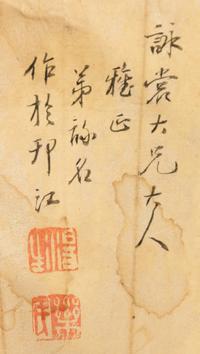 詠裳大兄大人
雅正
弟詠名
作於邗江